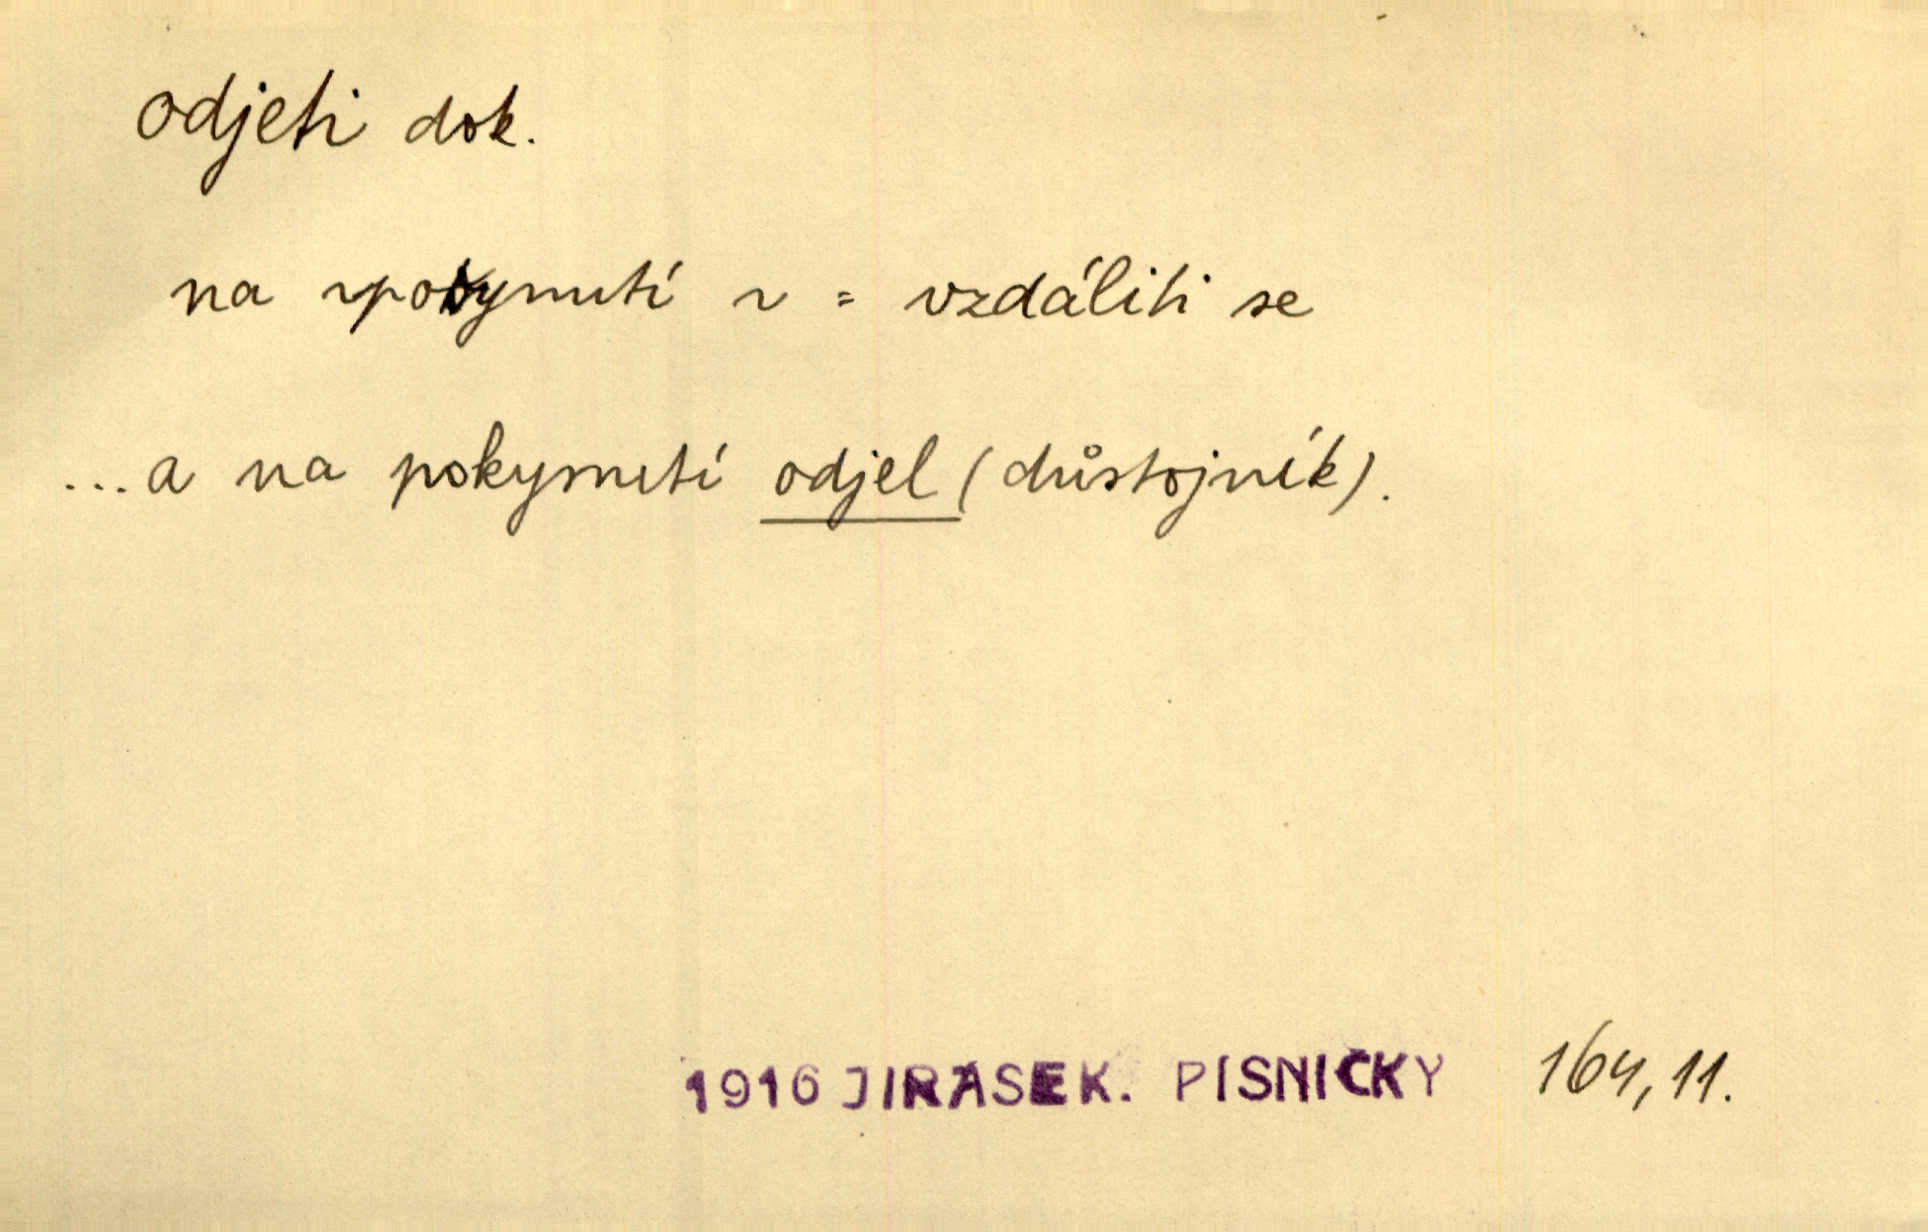 odjeti dok.
na pokynutí ~ = vzdáliti se
...a na pokynutí odjel (důstojník).
1916 JIRASEK. PISNIČKY 164,11.